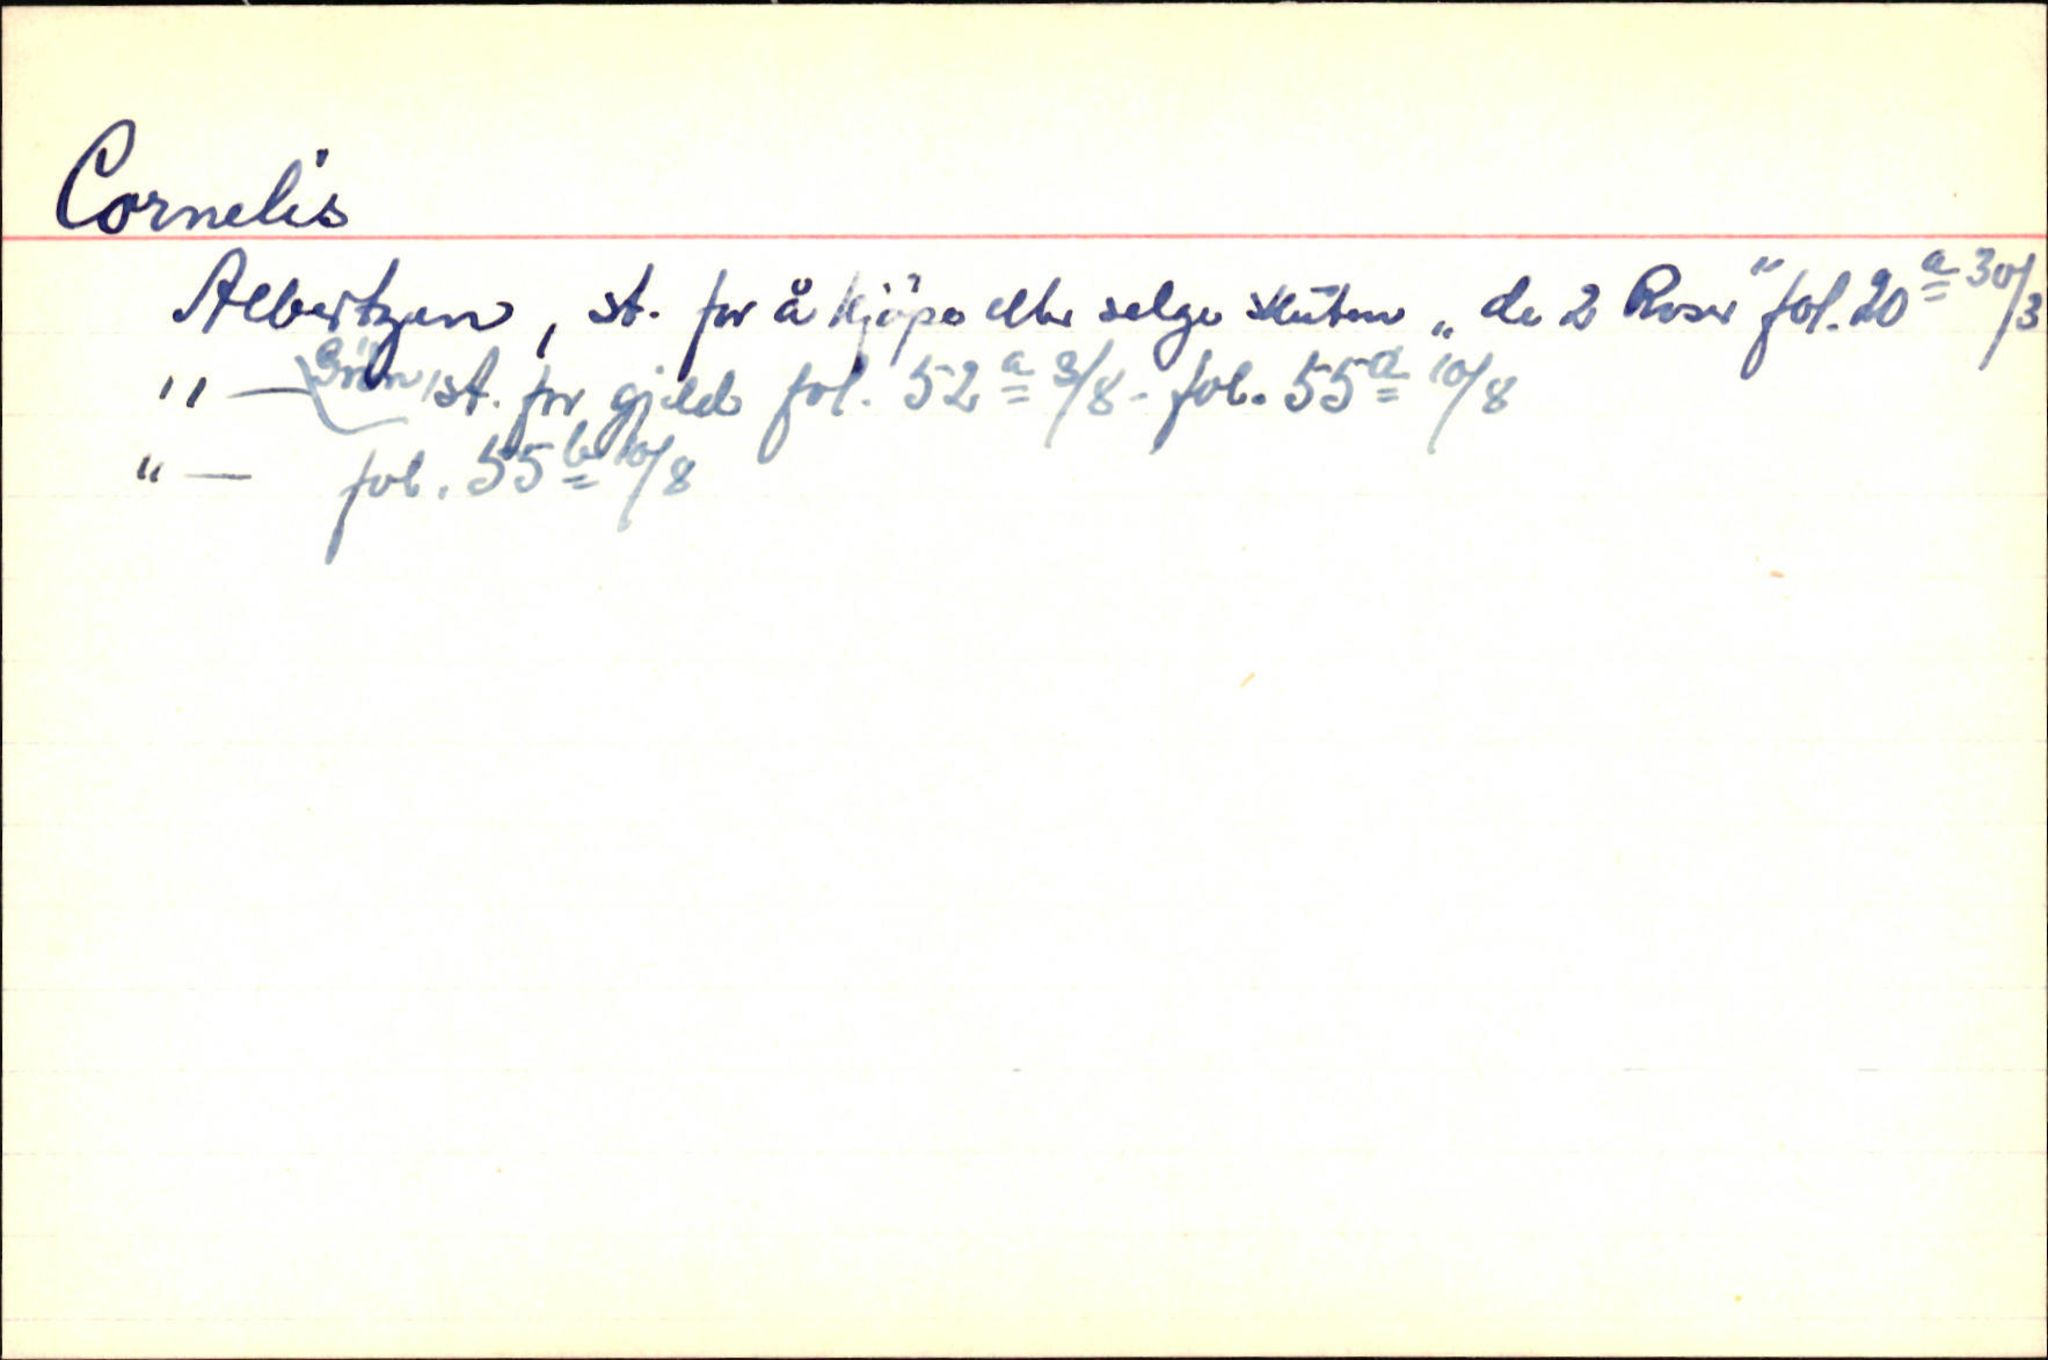 Cornelis
Albertzen, st. for å kjöpe eller selge skuten „de 2 Roser" fol. 20 a 30/3
" — st. for gjeld fol. 52 a 3/8 - fol. 55 a 10/8
" — fol. 55 b 10/8